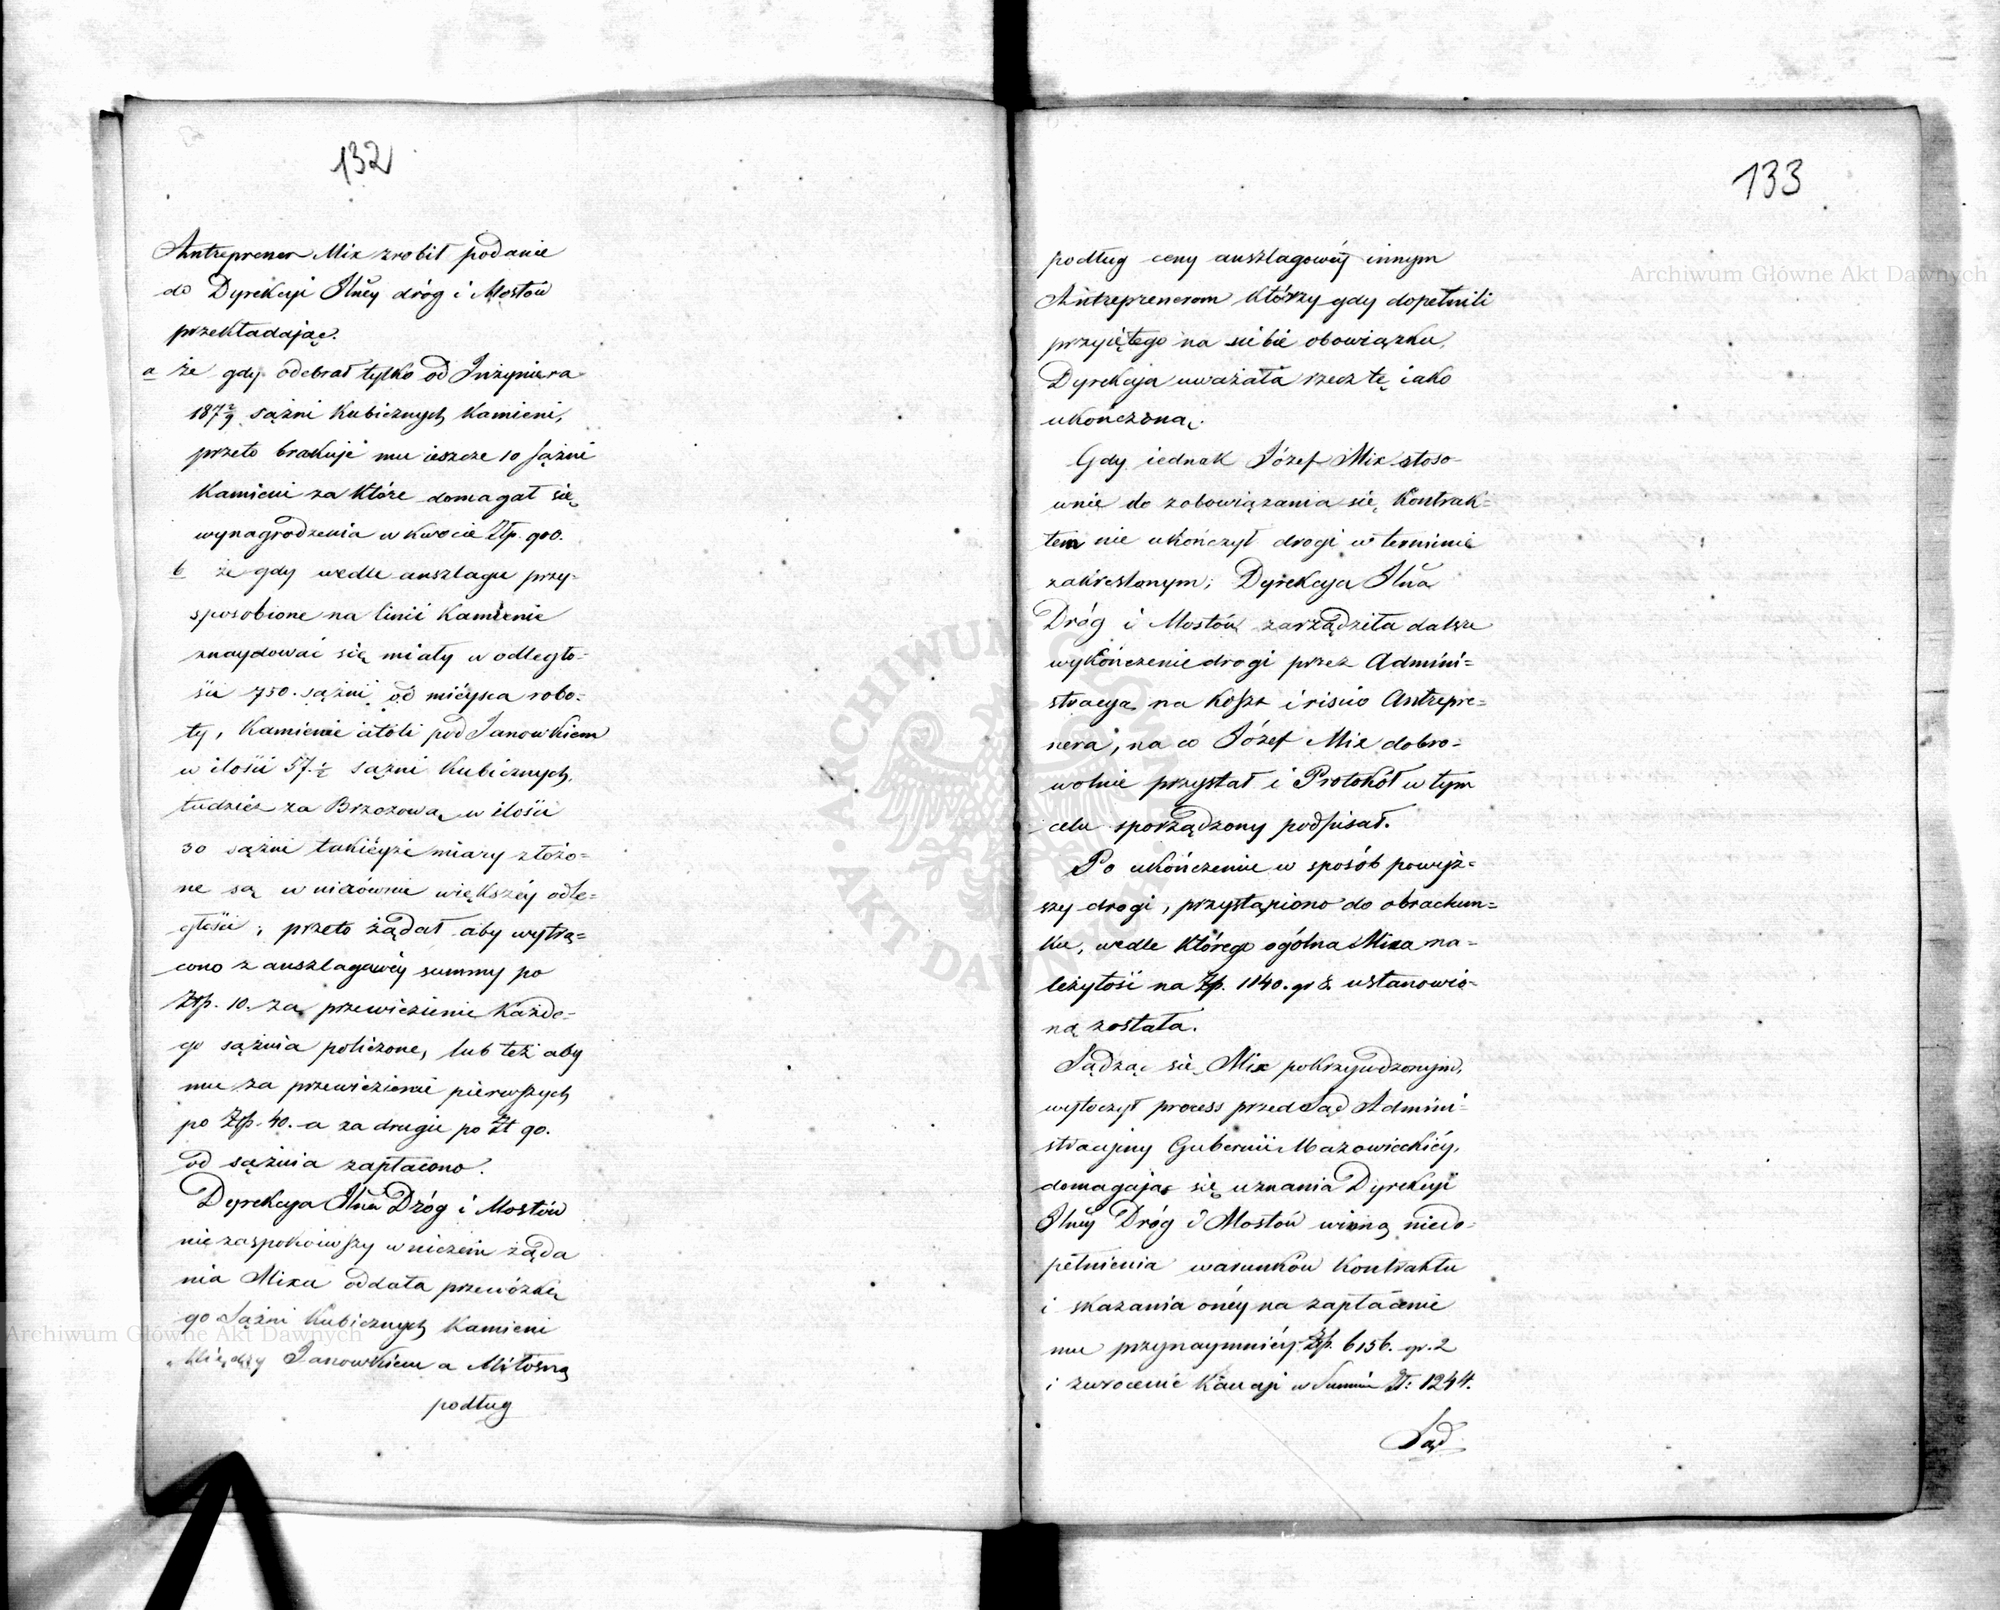 132
Antreprener Mix zrobił podanie
do Dyrekcyi Jlney dróg i Mostów
przekładając.
a że gdy odebrał tylko od Inżyniera
187 2/9 sążni Kubicznych Kamieni,
przeto brakuje mu ieszcze 10 sążni
Kamieni za które domagał się
wynagrodzenia w kwocie Złp. 900.
b że gdy wedle anszlagu przy=
sposobione na linii Kamienie
znaydować się miały w odległo=
ści 750. sążni od mieysca robo=
ty, Kamienie atoli pod Janowkiem
w ilości 57. 1/2 sążni Kubicznych,
tudzież za Brzozową w ilości
30 sążni takiéyże miary złożo=
ne są w nierównie większéy odle=
głości, przeto żądał aby wytrą=
cono z anszlagowéy summy po
Złp. 10. za przewiezienie Każde=
go sążnia policzone, lub też aby
mu za przewiezienie pierwszych
po Złp. 40. a za drugie po Zł 90.
od sążnia zapłacono.
Dyrekcya Jlna Dróg i Mostów
nie zaspokoiwszy w niczem żąda
nia Mixa oddała przewózkę
90 Sążni Kubicznych Kamieni
Między Janowkiem a Miłosną
podług
133
podług ceny anszlagowéy innym
Antreprenerom którzy gdy dopełnili
przyiętego na siebie obowiązku,
Dyrekcja uważała rzecz tę iako
ukończoną.
Gdy iednak Józef Mix stoso-
wnie do zobowiązania się Kontrak=
tem nie ukończył drogi w terminie
zakreślonym, Dyrekcya Jlna
Dróg i Mostów zarządziła dalsze
wykończenie drogi przez Admini=
stracyą na koszt i risico Antrepre=
nera, na co Józef Mix dobro=
wolnie przystał i Protokół w tym
celu sporządzony podpisał.
Po ukończeniu w sposób powyż=
szy drogi, przystąpiono do obrachun=
ku, wedle którego ogólna Mixa na=
leżytość na Złp. 1140. gr 8. ustanowio=
ną została.
Sądząc się Mix pokrzywdzonym,
wytoczył process przed Sąd Admini=
stracyjny Gubernii Mazowieckiéy,
domagając się uznania Dyrekcyi
Jlney Dróg i Mostów winną niedo=
pełnienia warunków Kontraktu
i skazania onéy na zapłacenie
mu przynaymniéy Złp. 6156. gr. 2
i zwrócenie Kaucyi w Summie Zł: 1244.
Sąd
Archiwum Główne Akt Dawnych
Archiwum Główne Akt Dawnych
ARCHIWUM GŁÓWNE
AKT DAWNYCH